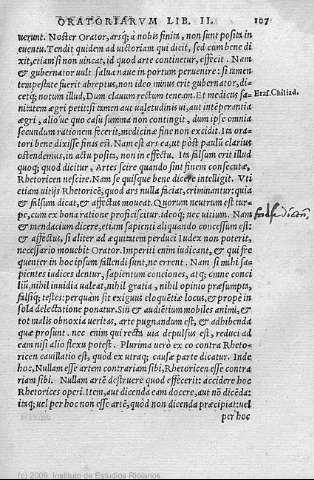 ORATORIARVM LIB. II. 107
uerunt. Noster Orator, arsq; à nobis finita, non sunt posita in
euentu. Tendit quidem ad uictoriam qui dicit, sed cum bene di
xit, etiamsi non uincat, id quod arte continetur, effecit. Nam
& gubernator uult salua naue in portum peruenire: si tamen
tempestate fuerit abreptus, non ideo minus erit gubernator, di-
cetq; notum illud, Dum clauum rectum teneam. Et medicus sa-
Eras. Chiliad.
nitatem ægri petit: si tamen aut ualetudinis ui, aut intẽperantia
ægri, alioue quo casu summa non contingit, dum ipse omnia
secundum rationem fecerit, medicinæ fine non excidit. Ita ora-
tori bene dixisse finis est. Nam est ars ea, ut pòst paulò clarius
ostendemus, in actu posita, non in effectu. Ita falsum erit illud
quoq; quod dicitur, Artes scire quando sint finem consecutæ,
Rhetoricen nescire. Nam se quisque bene dicere intelligit. Vti
etiam uitijs Rhetoricẽ, quod ars nulla faciat, criminantur: quia
& falsum dicat, & affectus moueat. Quorum neutrum est tur-
pe, cum ex bona ratione proficiscitur. ideoq; nec uitium. Nam
& mendacium dicere, etiam sapienti aliquando concessum est:
& affectus, si aliter ad æquitatem perduci Iudex non poterit,
necessario mouebit Orator. Imperiti enim iudicant, & qui fre
quenter in hoc ipsum fallendi sunt, ne errent. Nam si mihi sa-
pientes iudices dentur, sapientum conciones, atq; omne conci
liũ, nihil inuidia ualeat, nihil gratia, nihil opinio præsumpta,
falsiq; testes: perquàm sit exiguus eloquẽtiæ locus, & propè in
sola delectatione ponatur. Sin & audientium mobiles animi, &
tot malis obnoxia ueritas, arte pugnandum est, & adhibenda
quæ prosunt. nec enim qui recta uia depulsus est, reduci ad
eam nisi alio flexu potest. Plurima uerò ex eo contra Rheto-
ricen cauillatio est, quòd ex utraq; causæ parte dicatur. Inde
hoc, Nullam esse artem contrariam sibi, Rhetoricen esse contra
riam sibi. Nullam artẽ destruere quod effecerit: accidere hoc
Rhetorices operi. Item, aut dicenda eam docere, aut nõ dicẽda:
itaq; uel per hoc non esse artẽ, quòd non dicenda præcipiat: uel
per hoc
(c) 2009, Instituto de Estudios Riojanos